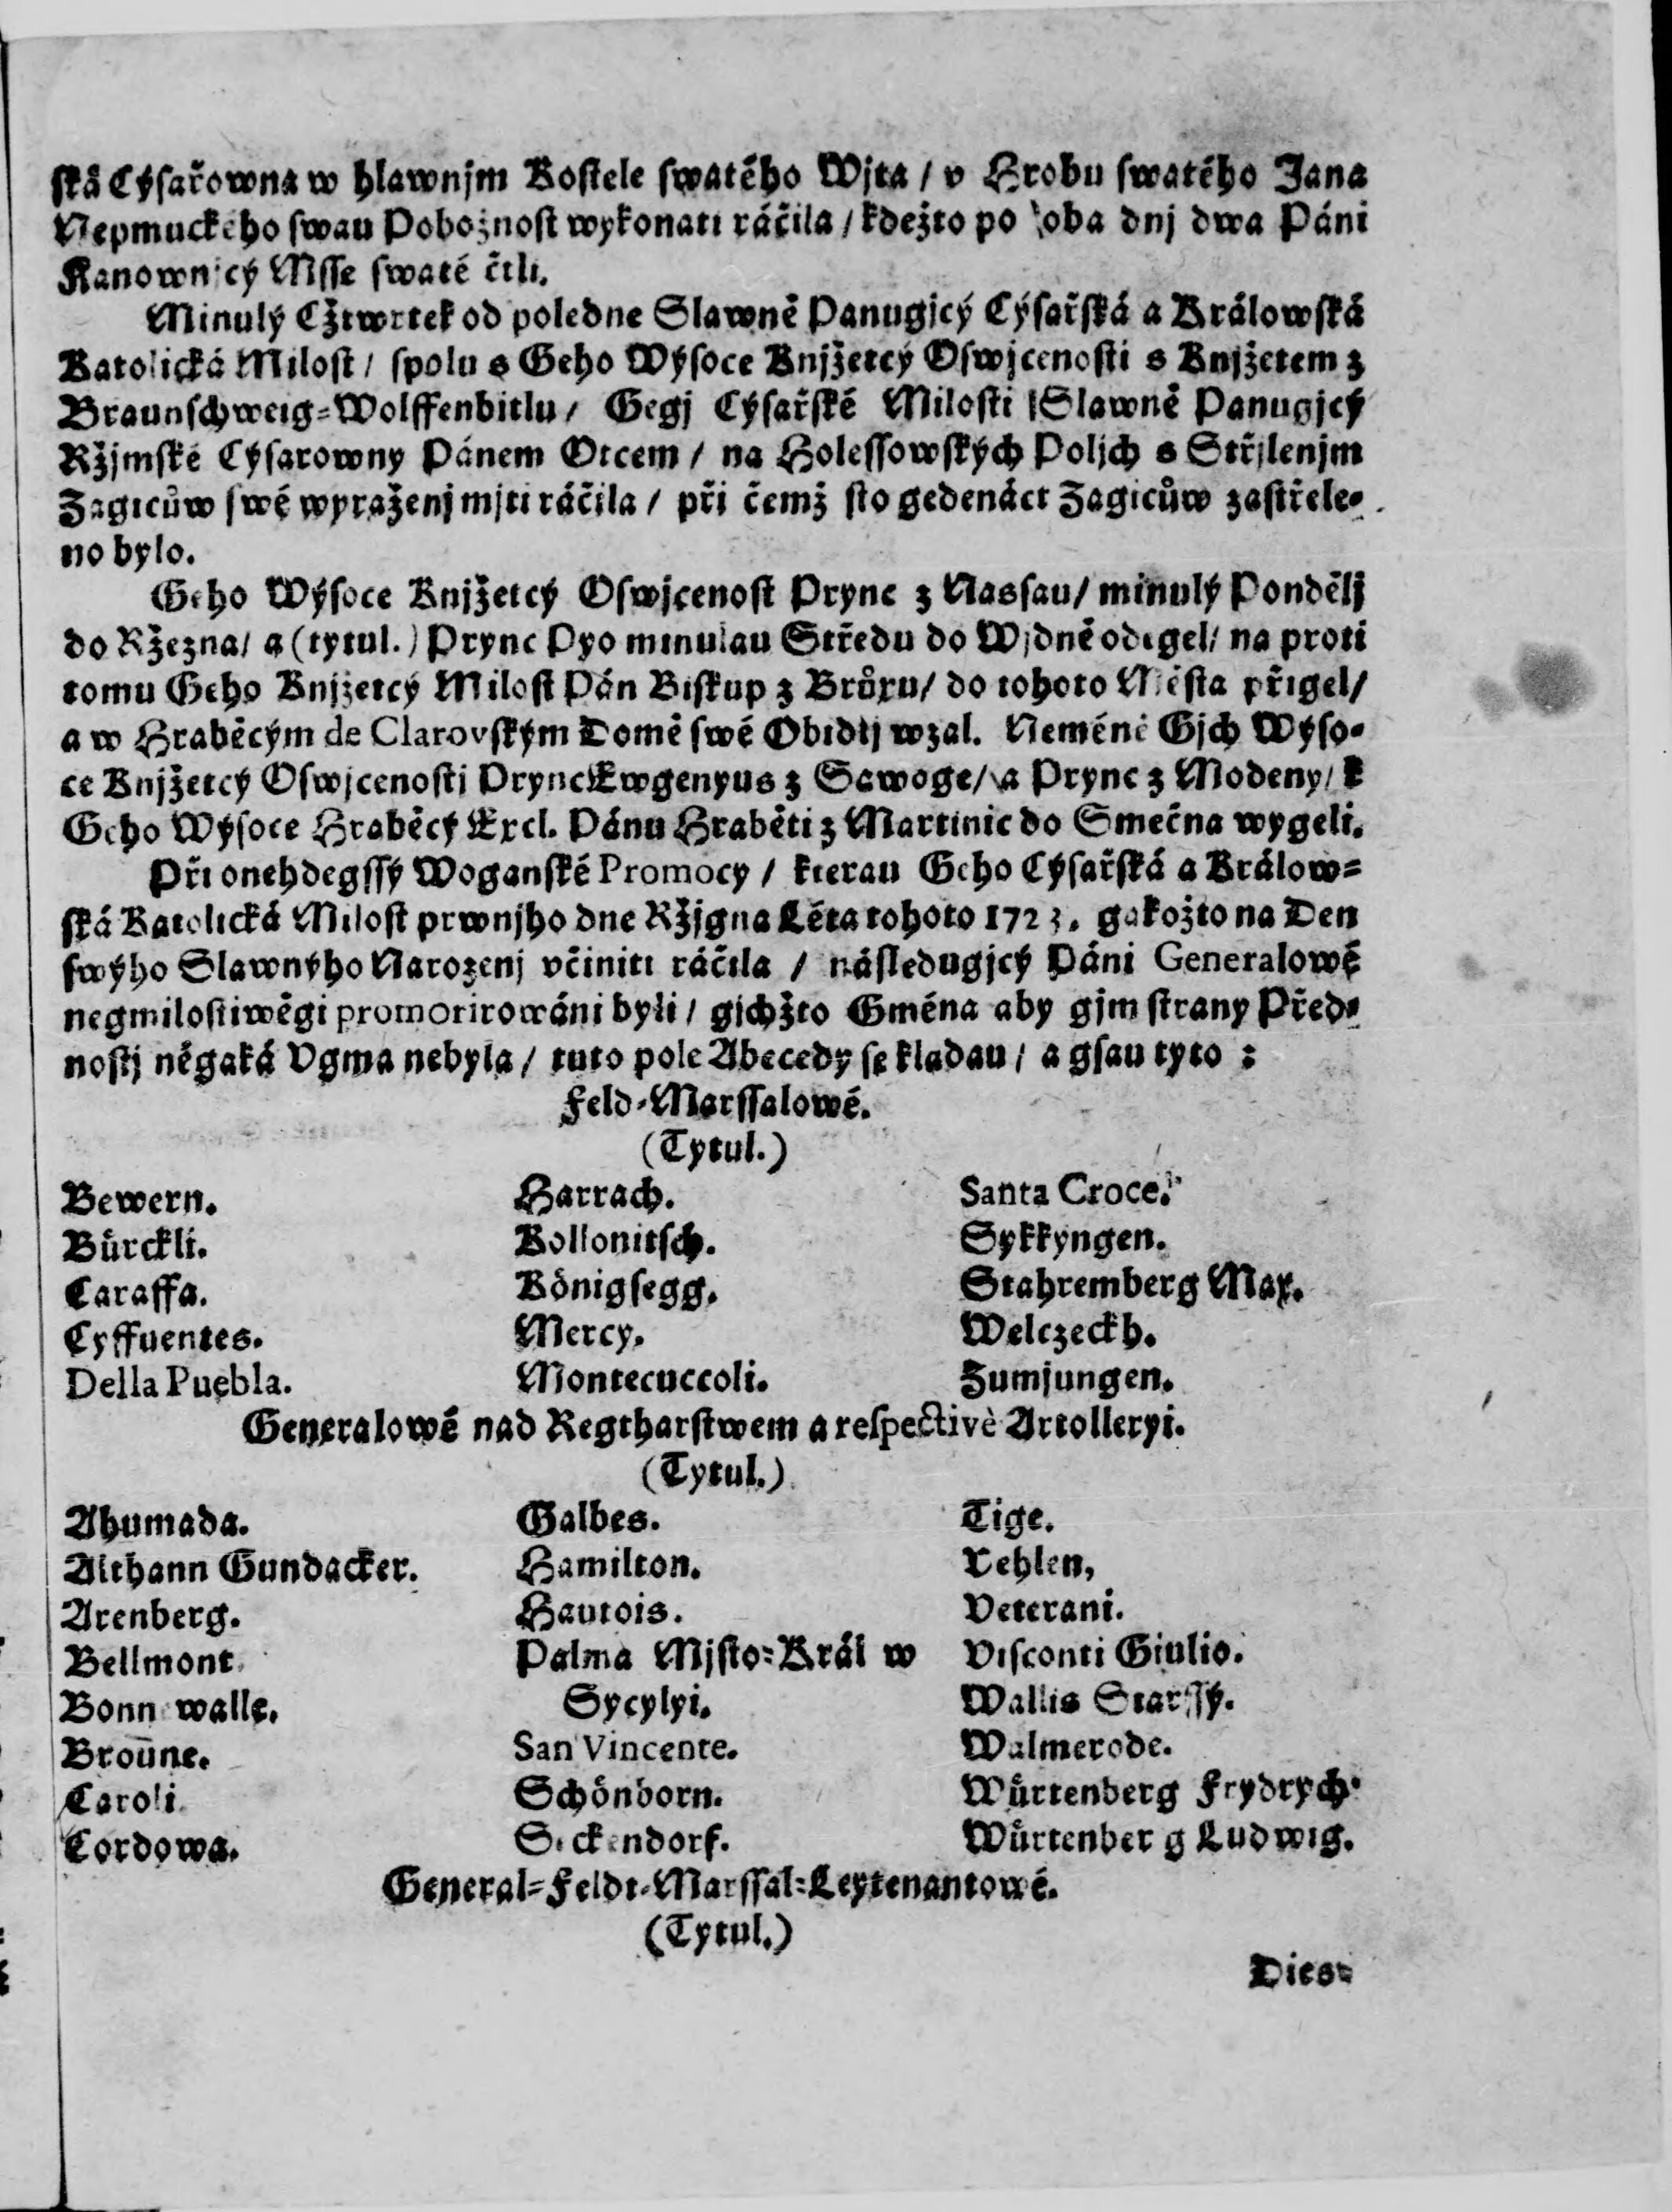 ſká Cýſařowna w hlawnjm Koſtele ſwatého Wjta / v Hrobu ſwatého Jana
Nepmuckého ſwau Pobožnoſt wykonati ráčila / kdežto po oba dnj dwa Páni
Kanownjcý Mſſe ſwaté čtli.
Minulý Cžtwrtek od poledne Slawně Panugjcý Cýſařſká a Králowſká
Katolická Miloſt / ſpolu s Geho Wýſoce Knjžetcý Oſwjcenoſti s Knjžetem z
Braunſchweig=Wolffenbitlu / Gegj Cýſařſké Miloſti Slawně Panugjcý
Ržjmſké Cýſarowny Pánem Otcem / na Holeſſowſkých Poljch s Střjlenjm
Zagicůw ſwé wyraženj mjti ráčila / při čemž ſto gedenáct Zagicůw zaſtřele=
no bylo.
Geho Wýſoce Knjžetcý Oſwjcenoſt Prync z Nassau / minulý Pondělj
do Ržezna / a (tytul.) Prync Pyo minulau Středu do Wjdně odegel / na proti
tomu Geho Knjžetcý Miloſt Pán Biſkup z Brůxu / do tohoto Měſta přigel /
a w Hraběcým de Clarovſkým Domě ſwé Obidlj wzal. Neméně Gjch Wýſo=
ce Knjžetcý Oſwjcenoſtj Prync Ewgenyus z Sawoge / a Prync z Modeny / k
Geho Wýſoce Hraběcý Excl. Pánu Hraběti z Martinic do Smečna wygeli.
Při onehdegſſý Woganſké Promocy / kterau Geho Cýſařſká a Králow=
ſká Katolická Miloſt prwnjho dne Ržjgna Léta tohoto 1723. gakožto na Den
ſwýho Slawnýho Narozenj včiniti ráčila / náſledugjcý Páni Generalowé
negmiloſtiwěgi promorirowáni byli / gichžto Gména aby gjm ſtrany Před=
noſtj něgaká Vgma nebyla / tuto pole Abecedy ſe kladau / a gſau tyto :
Feld=Marſſalowé.
(Tytul.)
Bewern. Harrach. Santa Croce.
Bürckli. Kollonitſch. Sykkyngen.
Caraffa. Königſegg. Stahremberg Max.
Cyffuentes. Mercy. Welczeckh.
Della Puebla. Montecuccoli. Zumjungen.
Generalowé nad Regtharſtwem a reſpectivè Artolleryi.
(Tytul.)
Ahumada. Galbes. Tige.
Althann Gundacker. Hamilton. Vehlen,
Arenberg. Hautois. Veterani.
Bellmont. Palma Mjſto=Král w Viſconti Giulio.
Bonn walle. Sycylyi. Wallis Starſſý.
Broune. San Vincente. Walmerode.
Caroli. Schönborn. Würtenberg Frydrych.
Cordowa. Seckendorf. Würtenberg Ludwig.
General=Feldt=Marſſal=Leytenantowé.
(Tytul.)
Dies=